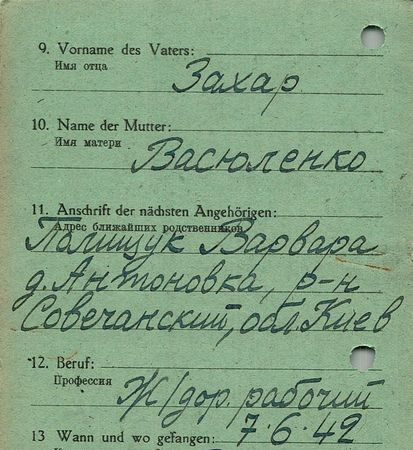 9. Vorname des Vaters:
Имя отца
Захар
10. Name der Mutter:
Имя матери
Васюленко
11. Anschrift der nächsten Angehörigen:
Адрес ближайших родственников
Палищук Варвара
д. Антоновка, р-н
Совечанский, обл. Киев
12. Beruf:
Профессия
Ж/дор. рабочий
13 Wann und wo gefangen: 7.6.42